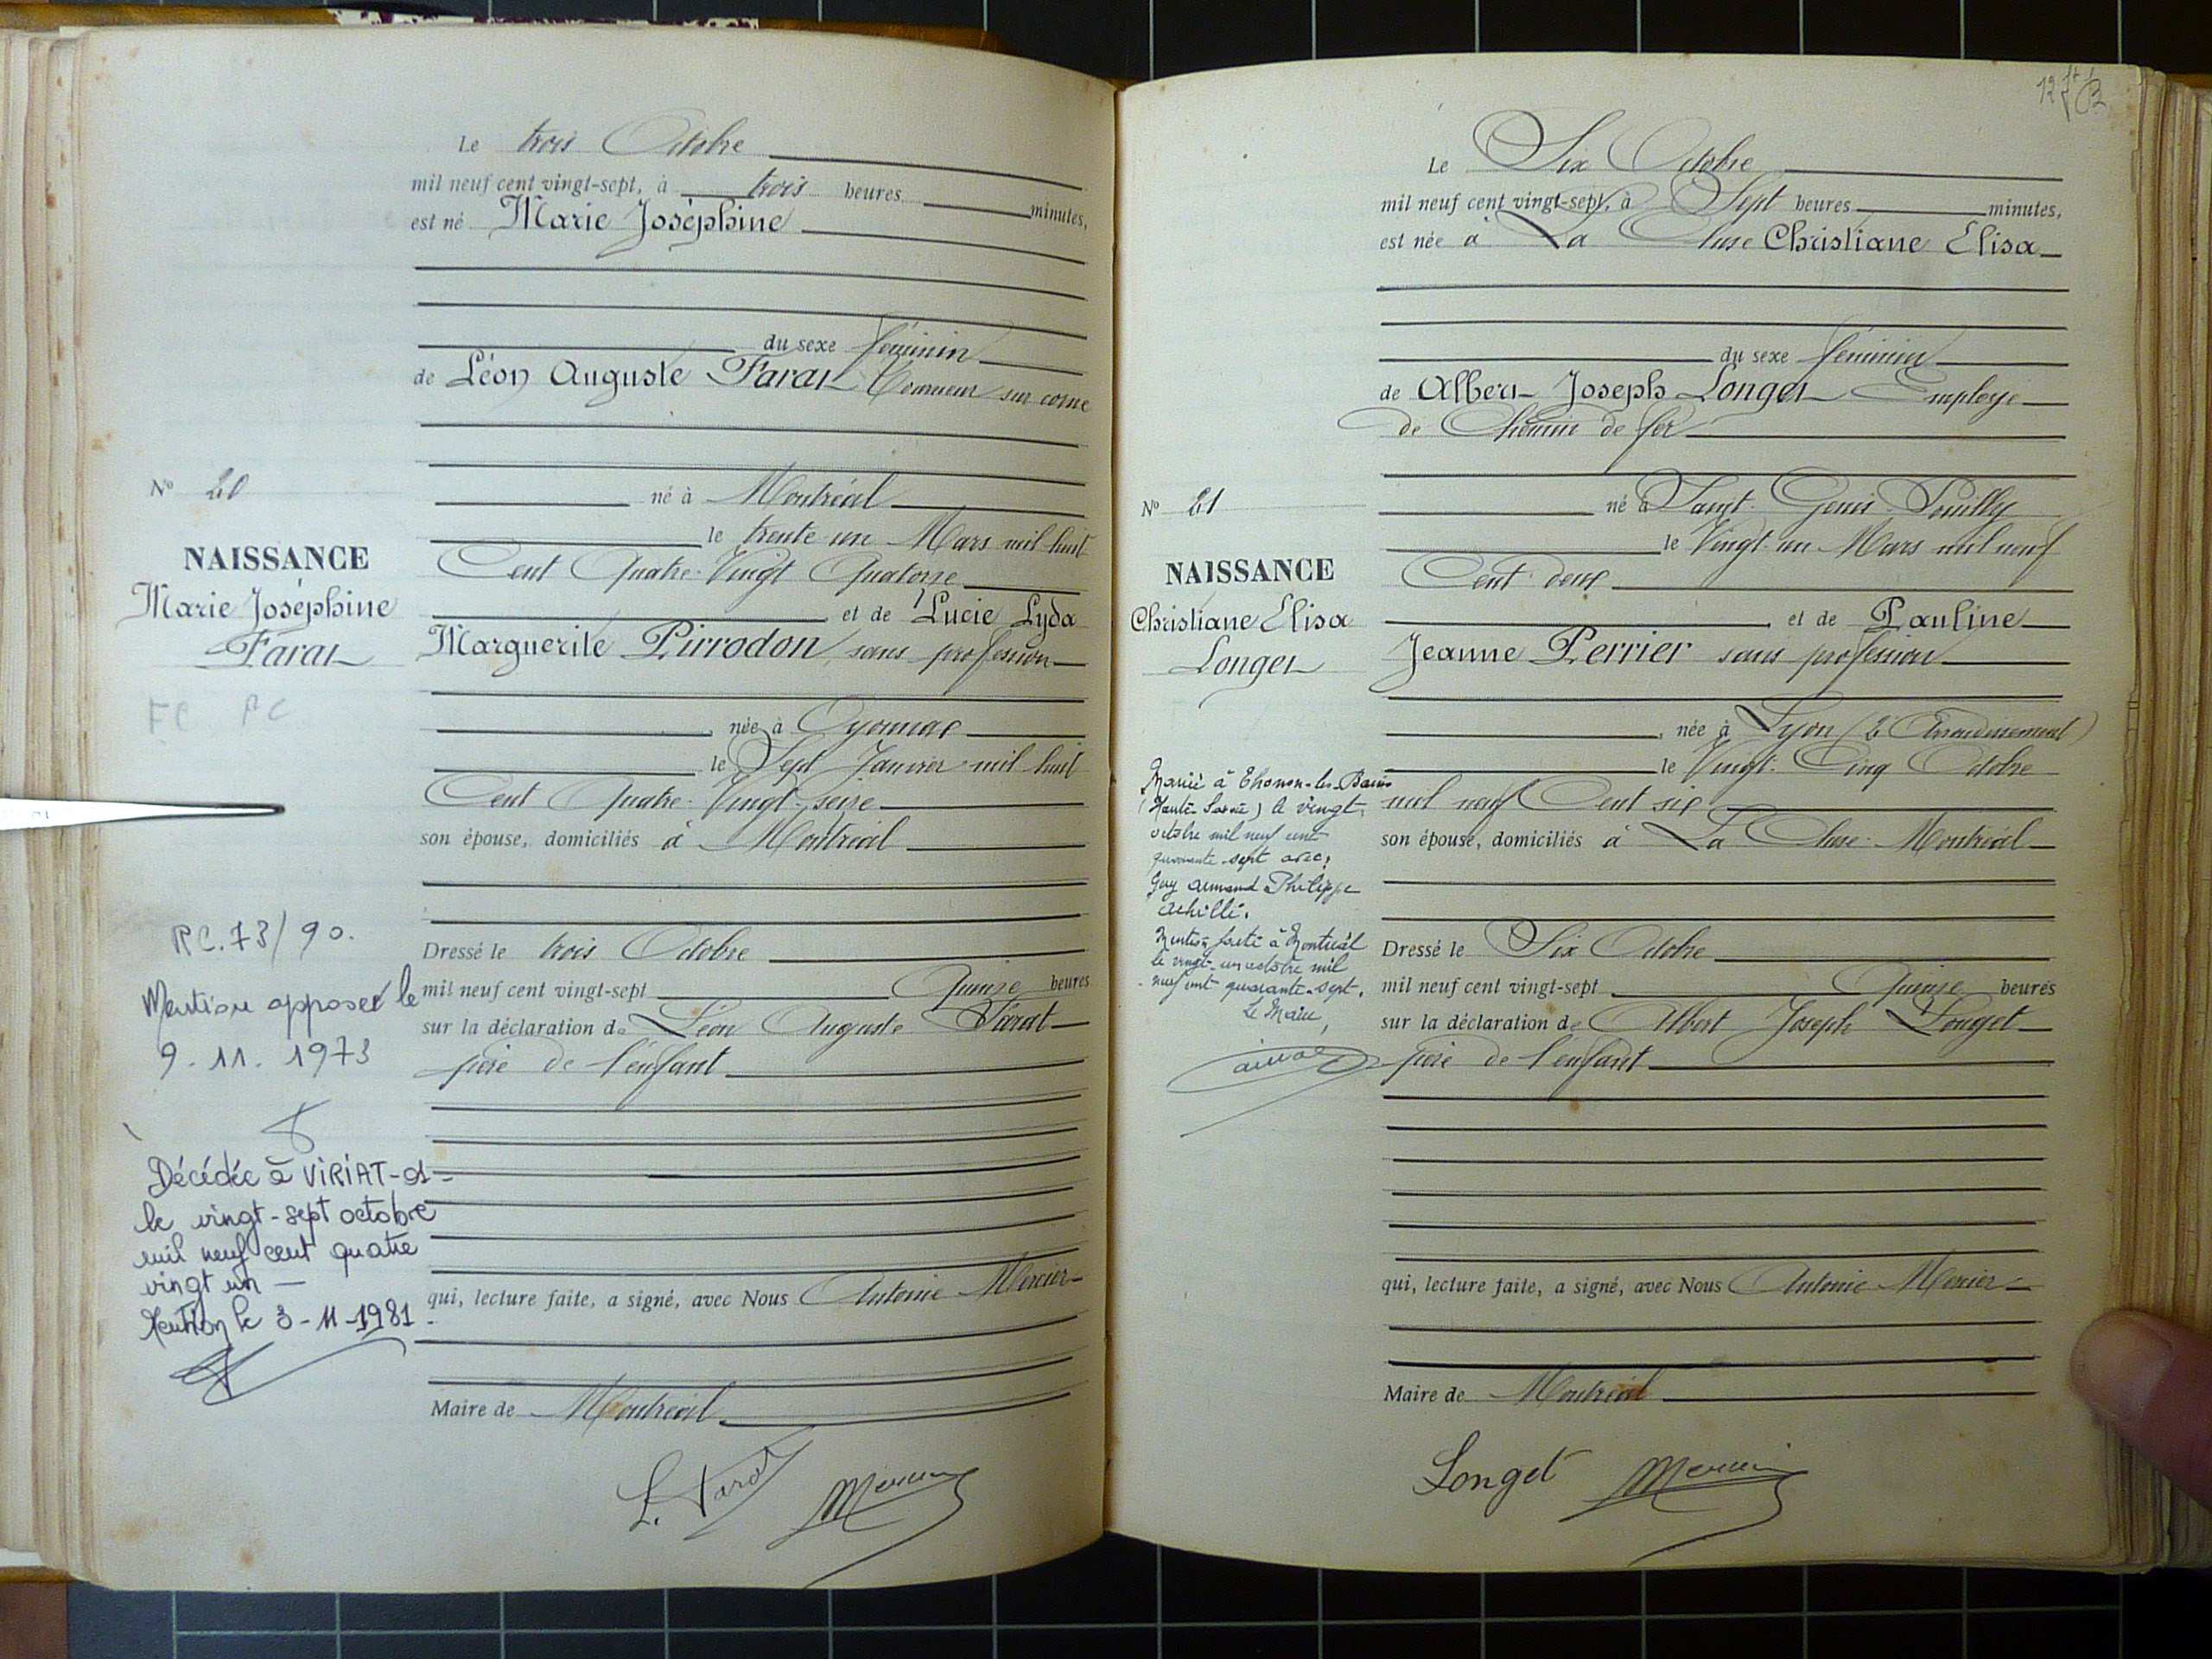 Le trois Octobre
mil neuf cent vingt-sept, à trois heures minutes,
est né Marie Joséphine
du sexe féminin
de Léon Auguste Farat Tourneur sur corne
né à Montréal
le trente un Mars mil huit
Cent Quatre-Vingt Quatorze
et de Lucie Lyda
Marguerite Pirrodon sans profession
née à Oyonnax
le Sept Janvier mil huit
Cent Quatre-Vingt-seize
son épouse, domiciliés à Montréal
Dressé le trois Octobre
mil neuf cent vingt-sept Quinze heures
sur la déclaration de Léon Auguste Farat
père de l'enfant
qui, lecture faite, a signé, avec Nous Antoine Mercier
Maire de Montréal
L. Farat Mercier
No 20
NAISSANCE
Marie Joséphine
Farat
FC PC
RC.73/90.
Mention apposée le
9.11.1973
Décédée à VIRIAT-01-
le vingt-sept octobre
mil neuf cent quatre
vingt un
Mention le 3-11-1981.
Le Six Octobre
mil neuf cent vingt-sept, à Sept heures minutes,
est née à La Cluse Christiane Elisa
du sexe féminin
de Albert Joseph Longet Employé
de Chemin de fer
né à Saint-Genis-Pouilly
le Vingt-un Mars mil neuf
Cent deux
et de Pauline
Jeanne Perrier sans profession
née à Lyon (2 Arrondissement)
le Vingt-Cinq Octobre
mil neuf Cent six
son épouse, domiciliés à La Cluse-Montréal
Dressé le Six Octobre
mil neuf cent vingt-sept Quinze heures
sur la déclaration de Albert Joseph Longet
père de l'enfant
qui, lecture faite, a signé, avec Nous Antoine Mercier
Maire de Montréal
Longet Mercier
No 21
NAISSANCE
Christiane Elisa
Longet
Mariée à Thonon-les-Bains
(Haute-Savoie) le vingt
octobre mil neuf cent
quarante-sept avec,
Guy Armand Philippe
Achille.
Mention faite à Montréal
le vingt-un octobre mil
neuf cent quarante-sept.
Le Maire,